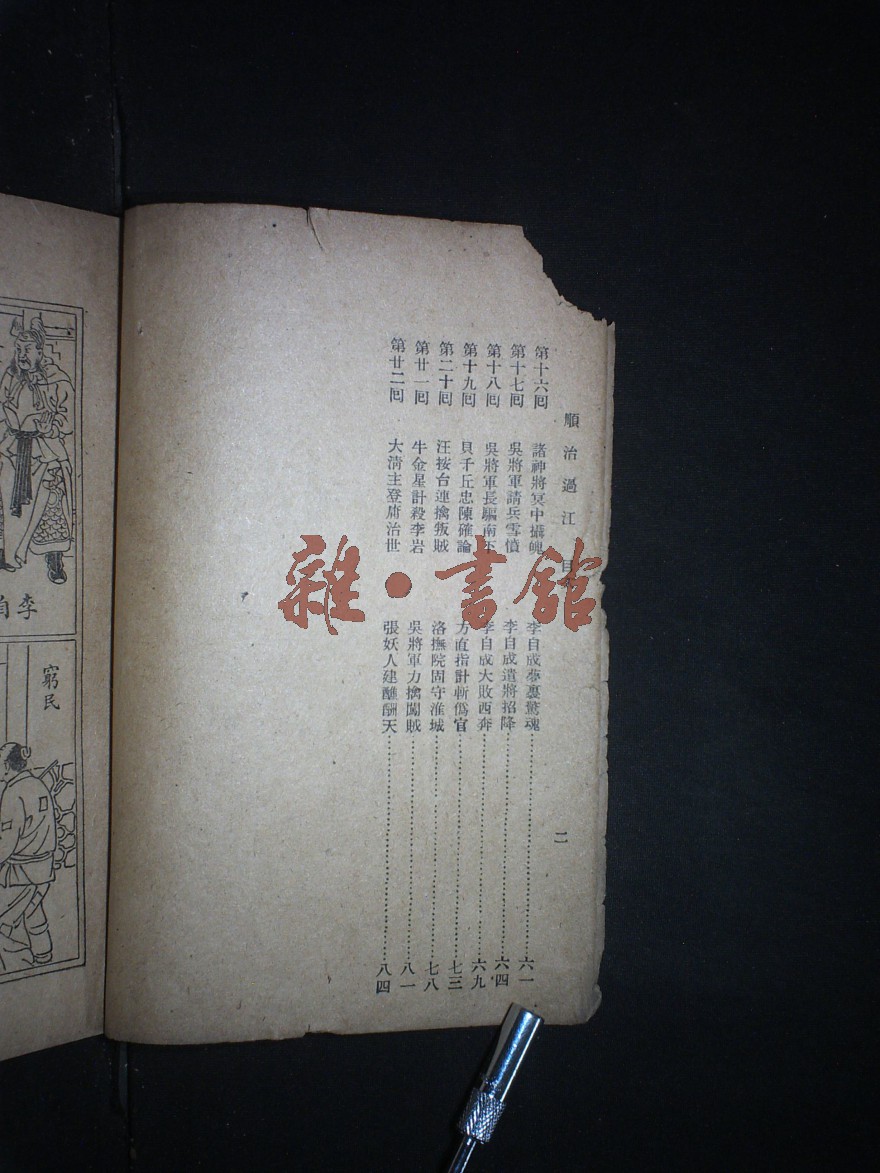 順治過江 目 二
第十六囘 諸神將冥中攝魄 李自成夢裏驚魂 六一
第十七囘 吳將軍請兵雪憤 李自成遣將招降 六四
第十八囘 吳將軍長驅南下 李自成大敗西奔 六九
第十九囘 貝千丘忠陳確論 方直指計斬僞官 七三
第二十囘 汪按台連擒叛賊 洛撫院固守淮城 七八
第廿一囘 牛金星計殺李岩 吳將軍力擒闖賊 八一
第廿二囘 大淸主登庸治世 張妖人建醮酬天 八四
雜·書館
李自
窮民